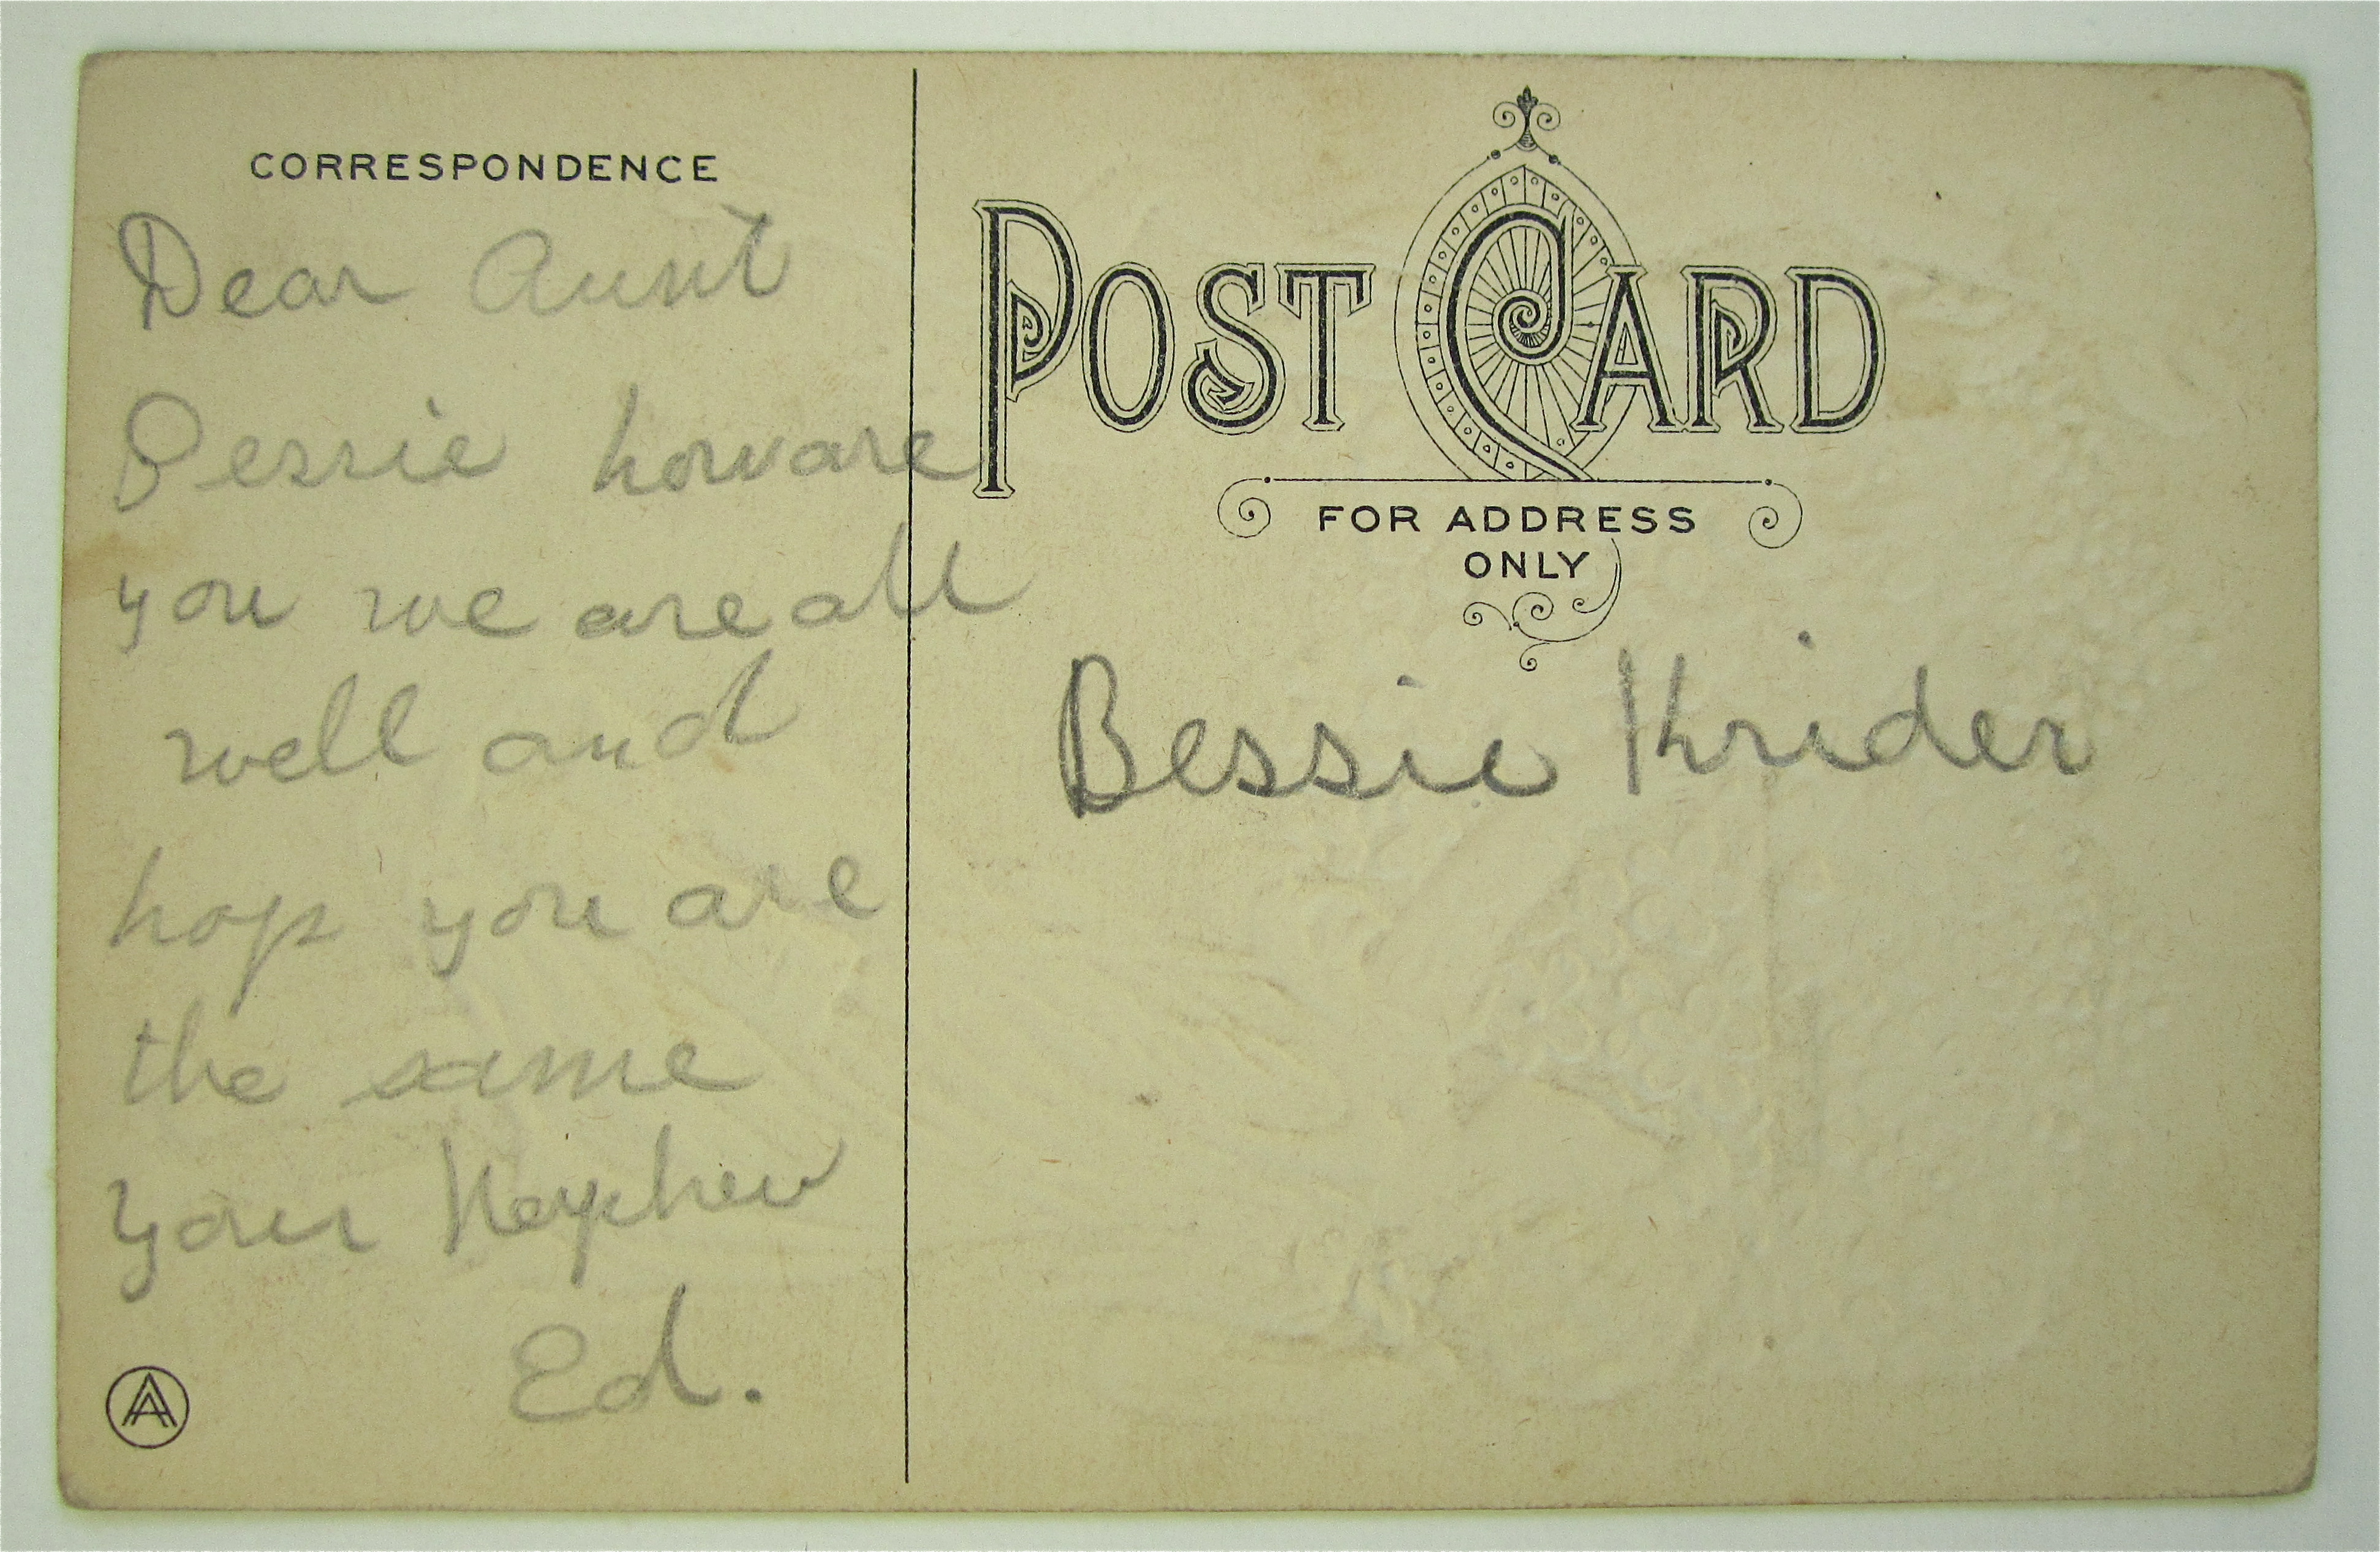 CORRESPONDENCE
Dear Aunt
Bessie how are
you we are all
well and
hop you are
the same
Your Nephew
Ed.
POST CARD
FOR ADDRESS
ONLY
Bessie Krider